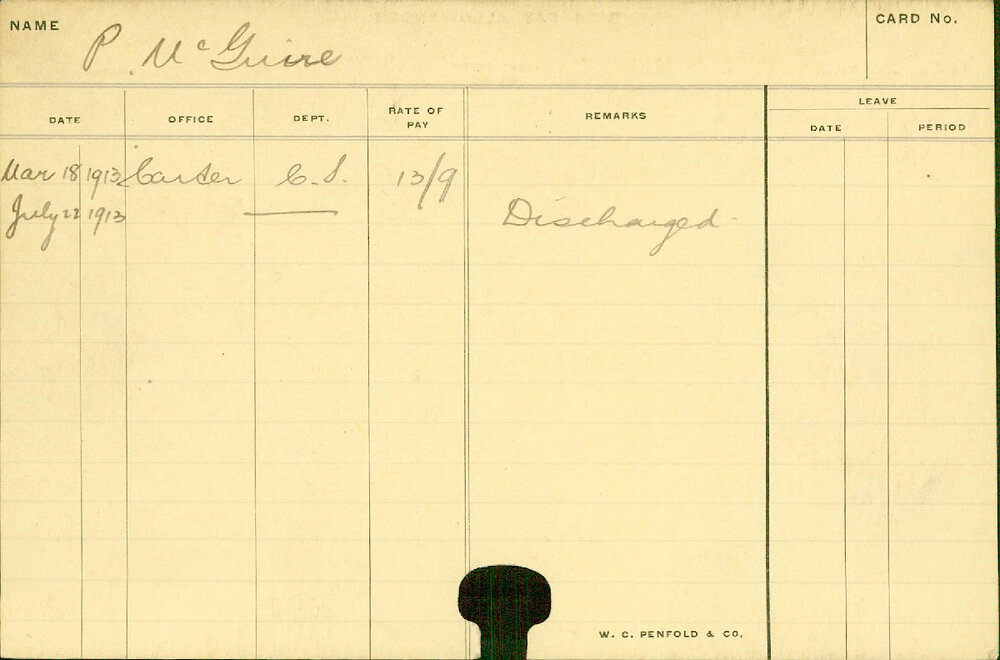 NAME P. McGuire CARD No.
DATE OFFICE DEPT. RATE OF PAY REMARKS LEAVE
DATE PERIOD
Mar 18 1913 Carter C.S. 13/9
July 22 1913 — Discharged
W. C. PENFOLD & CO.